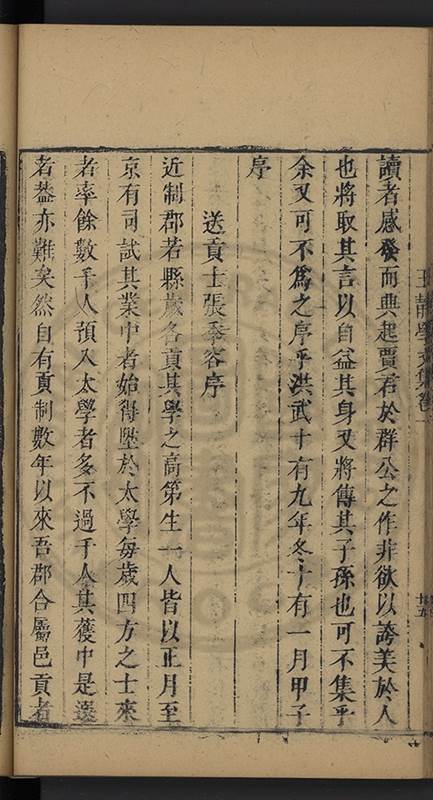 讀者感發而典起賈君於群公之作非欲以誇美於人
也將取其言以自益其身又將傳其子孫也可不集乎
余又可不爲之序乎洪武十有九年冬十有一月甲子
序
送貢士張季容序
近制郡若縣歲各貢其學之高第生一人皆以正月至
京有司試其業中者始得陞於太學每歲四方之士來
者率餘數千人預入太學者多不過千人其獲中是選
者葢亦難矣然自有貢制數年以來吾郡合屬邑貢者
王靜學文集卷